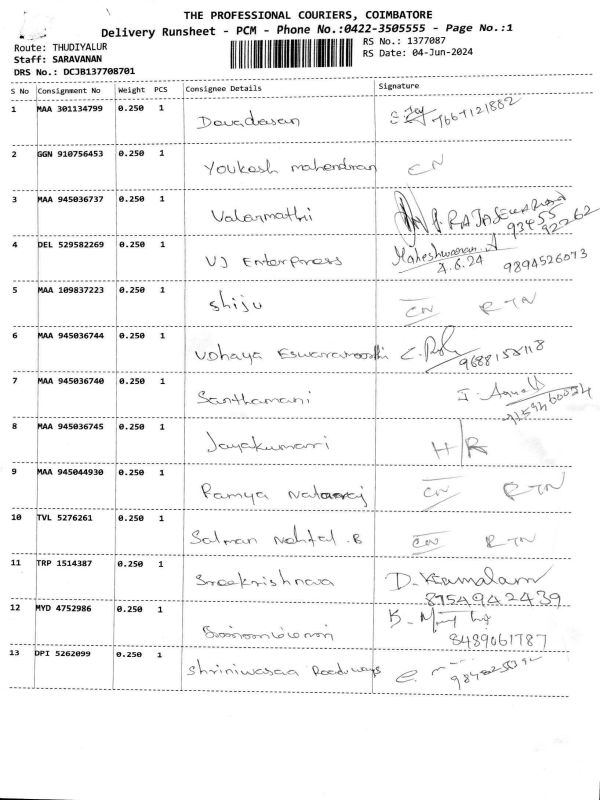 THE PROFESSIONAL COURIERS, COIMBATORE
Delivery Runsheet - PCM - Phone No.:0422-3505555 - Page No.:1
Route: THUDIYALUR
RS No.: 1377087
Staff: SARAVANAN
RS Date: 04-Jun-2024
DRS No.: DCJB137708701
S No Consignment No Weight PCS Consignee Details Signature
1 MAA 301134799 0.250 1 Devadasan 7667121882
2 GGN 910756453 0.250 1 Youkesh mahendran CN
3 MAA 945036737 0.250 1 Valarmathi
93455
92262
4 DEL 529582269 0.250 1 VJ Enterprises Maheshwaran. A
4.6.24 9894526073
5 MAA 109837223 0.250 1 Shiju CN RTN
6 MAA 945036744 0.250 1 Udhaya Eswaramoorthi
7 MAA 945036740 0.250 1 Santhamani
8 MAA 945036745 0.250 1 Jayakumari H/R
9 MAA 945044930 0.250 1 Ramya Nataraj CN RTN
10 TVL 5276261 0.250 1 Salman CN RTN
11 TRP 1514387 0.250 1 Sreekrishnaa D. Kamalam
8754942439
12 MYD 4752986 0.250 1
8489061787
13 DPI 5262099 0.250 1 Shriniwasaa Roadways